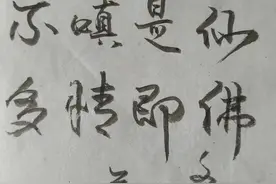 不嗔是仙
多情即佛